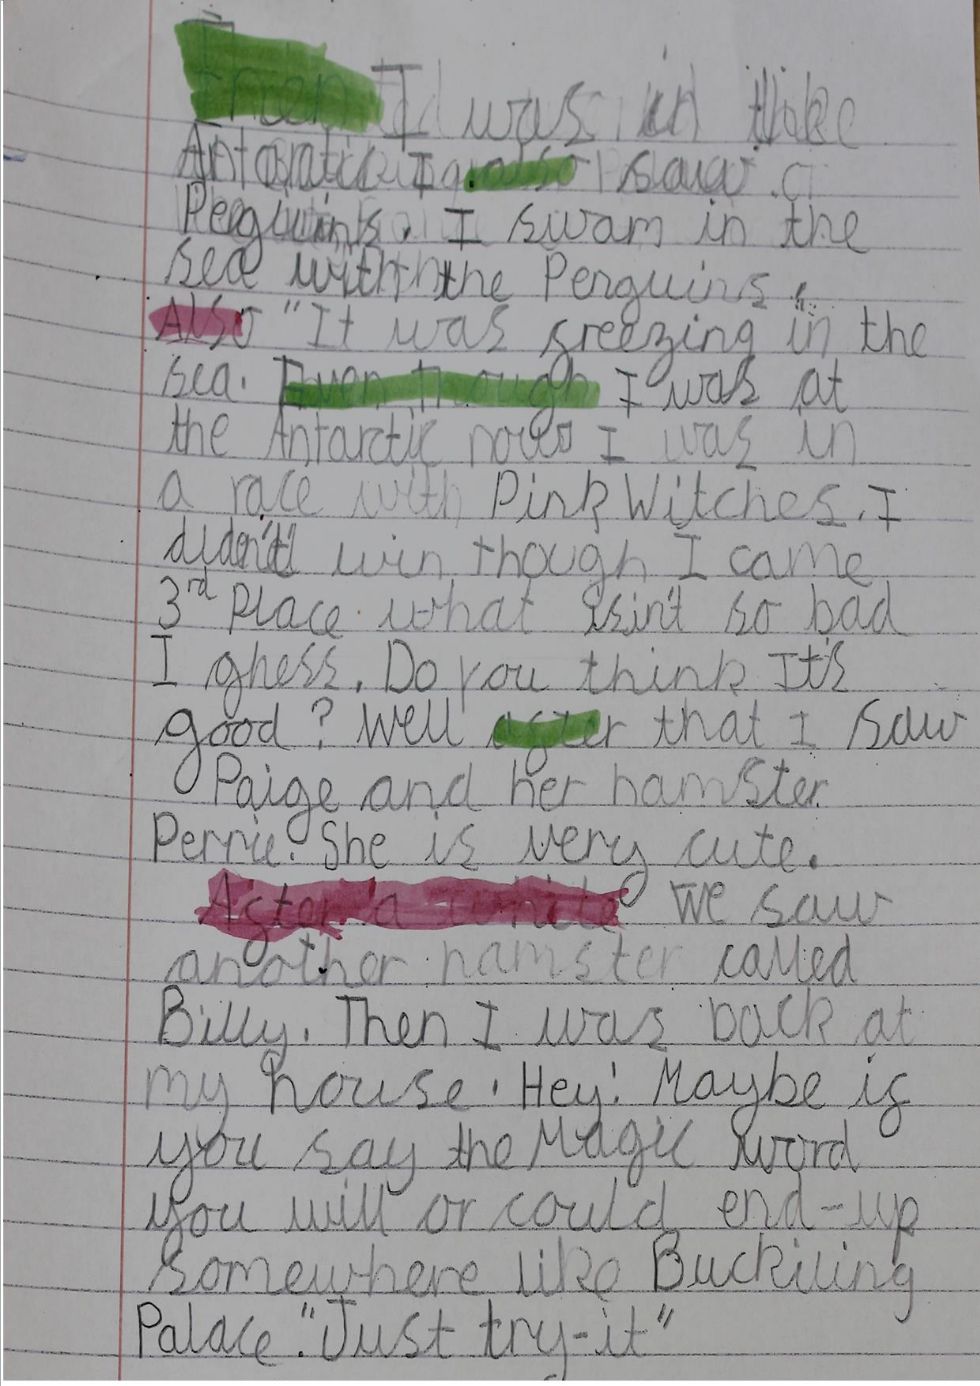 Then I was in the
Antarctic. I also saw
Penguins. I swam in the
sea with the Penguins.
Also "It was freezing in the
sea. Even though I was at
the Antarctic now I was in
a race with Pink Witches. I
didn't win though I came
3rd Place what isin't so bad
I ghess. Do you think It's
good? Well after that I saw
Paige and her hamster
Perrie. She is very cute.
After a while we saw
another hamster called
Billy. Then I was back at
my house. Hey! Maybe if
you say the Magic word
you will or could end-up
somewhere like Buckiling
Palace. "Just try-it"